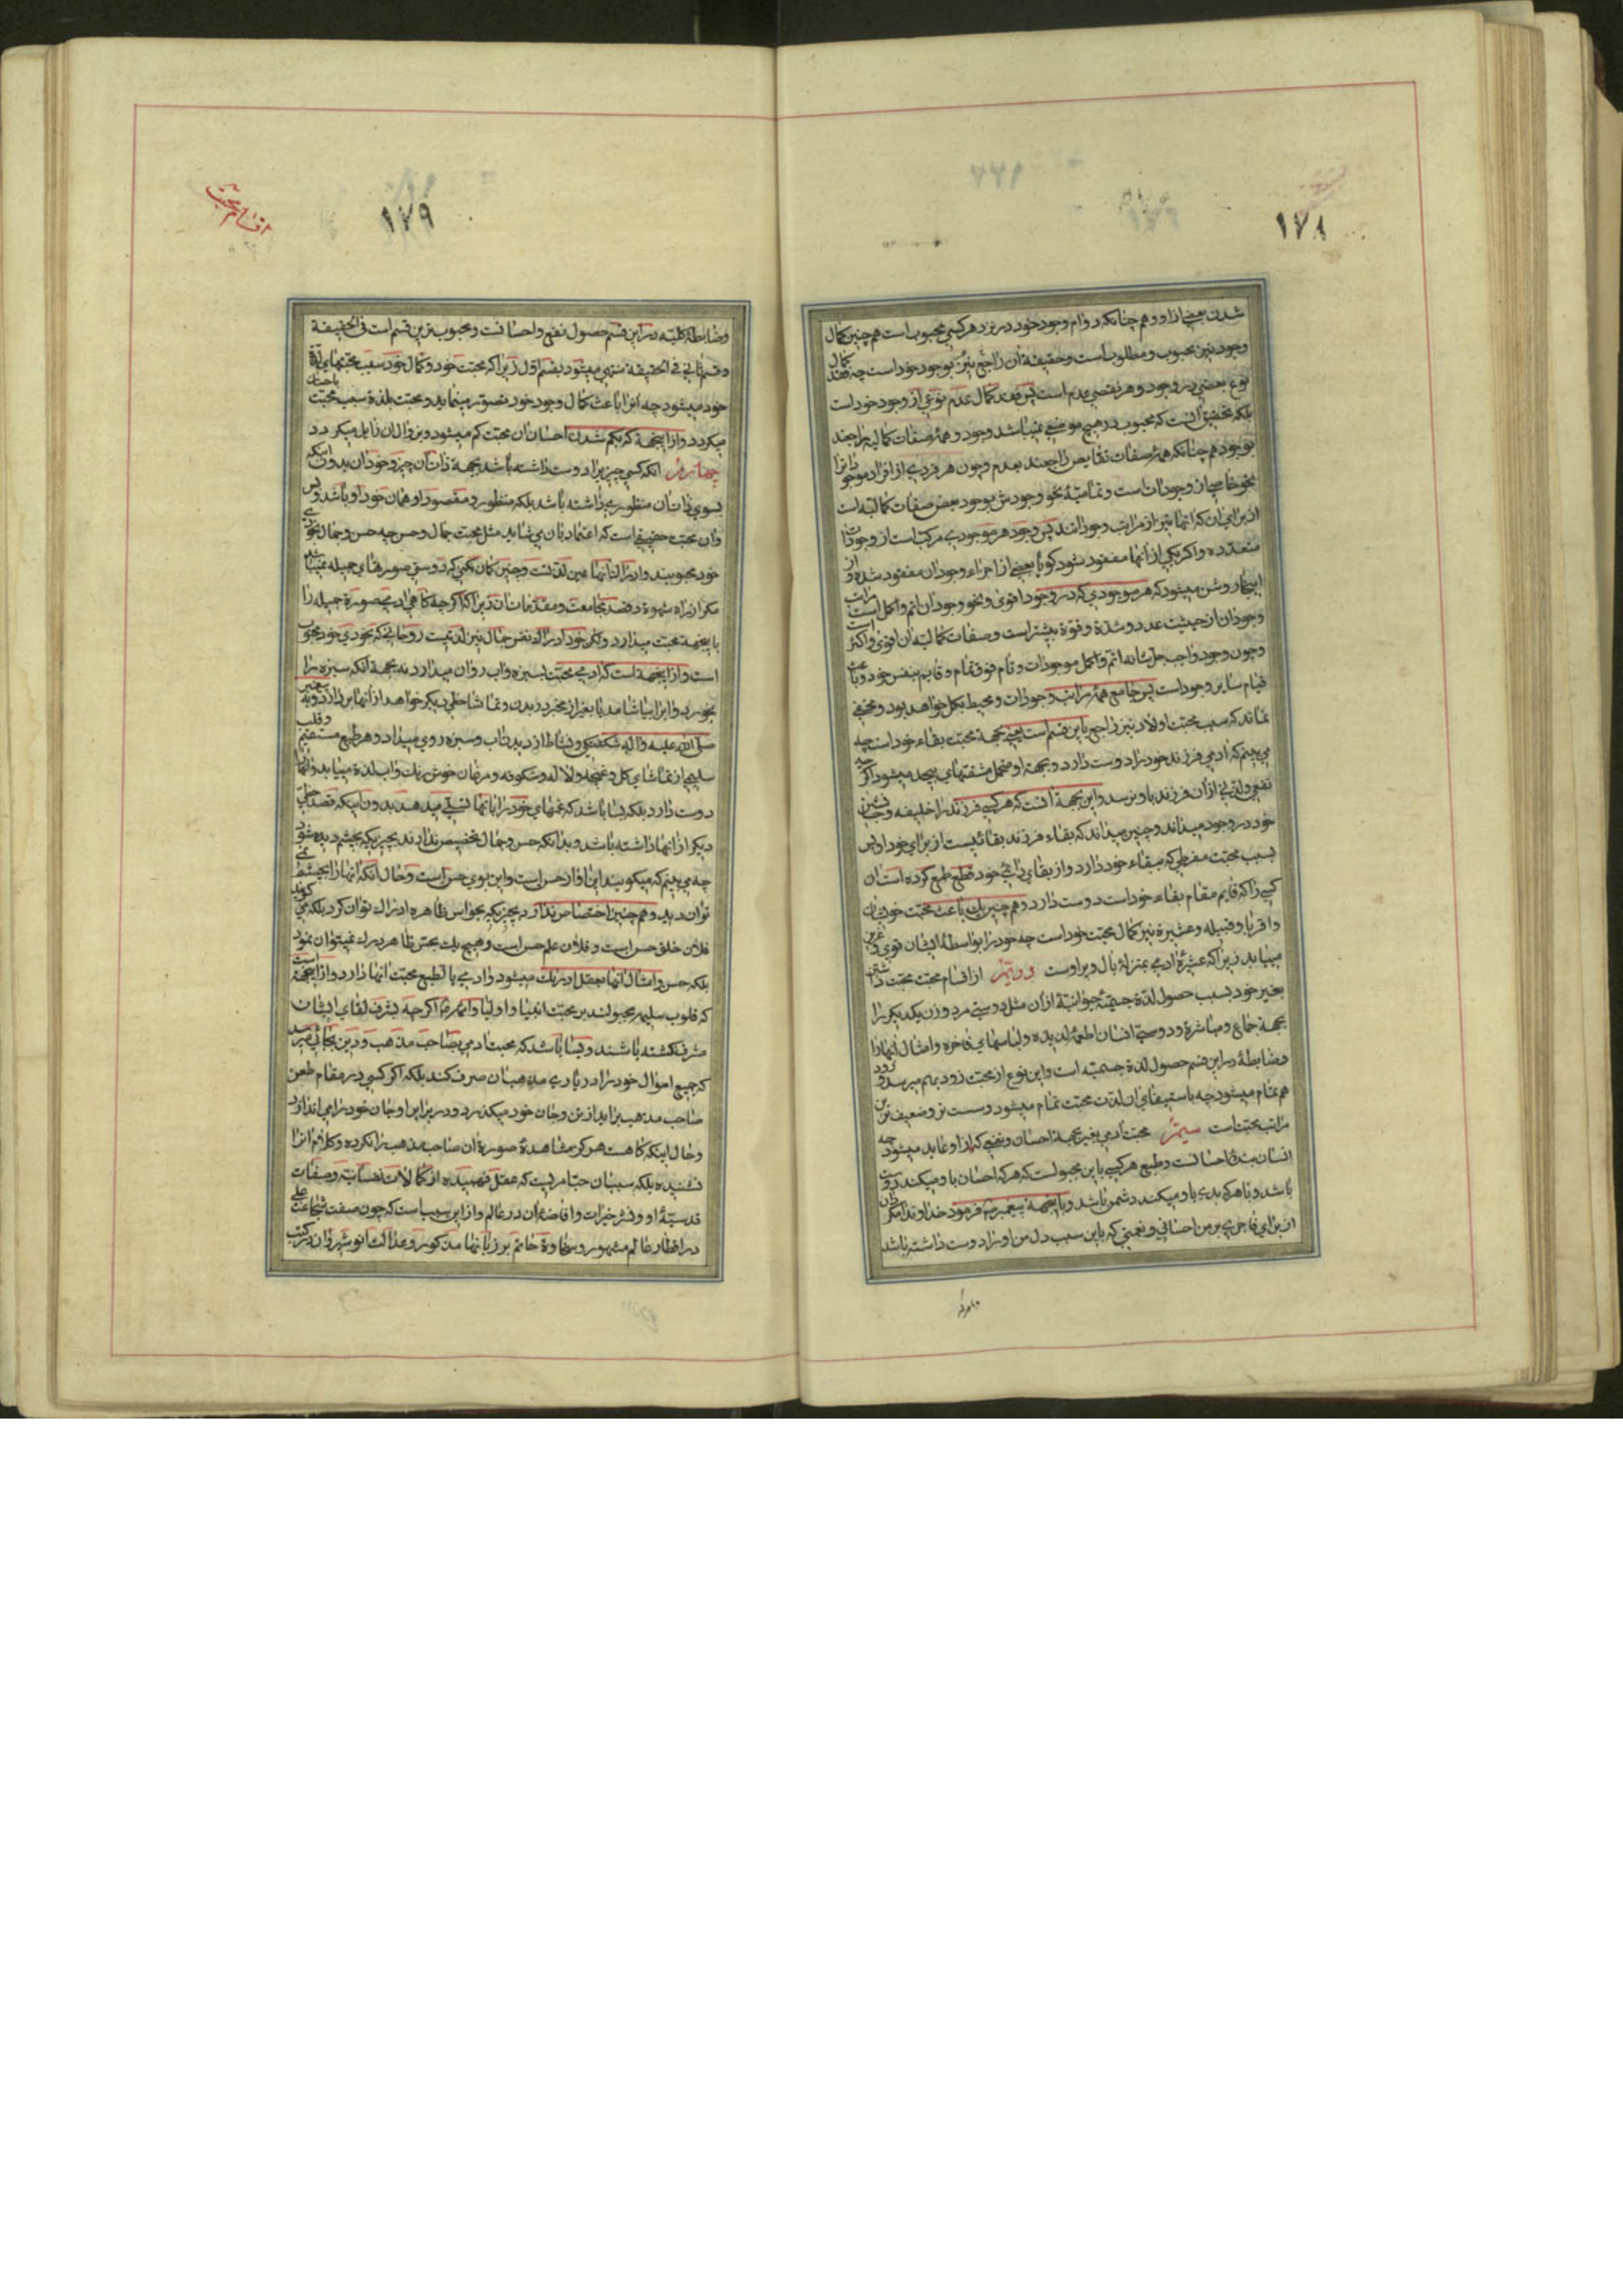 ١٧٨
شدن بعضی از او و هم چنانکه دوام وجود خود در نزد هر کسی محبوب است هم چنین کمال
وجود نیز محبوب و مطلوب است و حقیقة ان راجع نیز بوجود خود است چه فقد کمال
نوع بعضی در وجود و هر نقصی عدم است پس فقد کمال عدم نوعی از وجود خود است
بلکه تحقیق انست که محبوب در هیچ موضعی نمیباشد وجود و همۀ صفات کمالیه راجعند
بوجود هم چنانکه همۀ صفات نقایص راجعند بعدم و چون هر فردی از افراد موجودات را
نحو خاصی از وجودات است و تمامیۀ نحو وجودش بوجود بعض صفات کمالیه است
از برای ان که انها نیز از مراتب وجودانند پس وجود هر موجودی مرکب است از وجودات
متعدده و اگر یکی از انها مفقود شود گویا بعضی از اجزاء وجود ان مفقود شده و از
اینجا روشن میشود که هر موجودی که در وجود اقوی و نحو وجود ان اتم و اکمل است مراتب
وجود ان از حیثیت عدد و شدة و قوة بیشتر است و صفات کمالیه ان اقوی و اکثر است
و چون وجود واجب جل شانه اتم و اکمل موجودات و تام فوق تمام و قایم بنفس خود و باعث
قیام سایر وجود است پس جامع همۀ مراتب وجودات و محیط بکل خواهد بود و مخفی
نماند که سبب محبت اولاد نیز راجع باین قسم است یعنی بجهة محبت بقاء خود است چه
می بینم که ادمی فرزند خود را دوست دارد و بجهة او متحمل مشقتهای بیحد میشود اگر چه
نفعی و لذتی از ان فرزند باو نرسد و این بجهة انست که هر کسی فرزند را خلیفه و جانشین
خود در وجود میداند و چنین میداند که بقاء فرزند بقائیست از برای خود او پس
بسبب محبت مفرطی که ببقاء خود دارد و از بقای ذاتی خود قطع طمع کرده است ان
کسی را که قایم مقام بقاء خود است دوست دارد و هم چنین ان باعث محبت خویشان
و اقربا و قبیله و عشیرة نیز کمال محبت خود است چه خود را بواسطۀ ایشان قوی و عزیز
میبیابد زیرا که عشیرۀ ادمی بمنزلۀ بال و پر اوست دویّم از اقسام محبت محبت داشتن
بغیر خود بسبب حصول لذة جسمیۀ حیوانیۀ از ان مثل دوستی مرد و زن یکدیگر را
بجهة جماع و مباشرة و دوستی انسان اطعمۀ لذیذه و لباسهای فاخره و امثال اینها را
و ضابطۀ در این قسم حصول لذة جسمیه است و این نوع از محبت زود بهم میرسد و زود
هم تمام میشود چه باستیفای ان لذت محبت تمام میشود و سست تر و ضعیف ترین
مراتب محبتهاست سیّم محبت ادمی بغیر بجهة احسان و نفعی که از او عاید میشود چه
انسان بندۀ احسانست و طبع هر کسی باین مجبولست که هر که احسان باو میکند دوست
باشد و با هر که بدی باو میکند دشمن باشد و باینجهة پیغمبر ص فرمود خداوندا مگردان
از برای فاجری بر من احسانی و نعمتی که باین سبب دل من او را دوست داشته باشد
١٧٩
اقسام محبت
و ضابطۀ کلیه در این قسم حصول نفع و احسانست و محبوبترین قسم است فی الحقیقة
و قسم ثانی فی الحقیقة منتهی میشود بقسم اول زیرا که محبت خود و کمال خود سبب محبتهای لذة
خود میشود چه انرا باعث کمال وجود خود تصور مینماید و محبت بلذة سبب محبت باحسان
میگردد و از اینجهة که بکم شدن احسان ان محبت کم میشود و بزوال ان زایل میگردد
چهارم انکه کسی چیزیرا دوست داشته باشد بجهة ذات ان چیز و خود ان بدون اینکه
بسوی ذات ان منظوری داشته باشد بلکه منظور و مقصود او همان خود او باشد و بس
و ان محبت حقیقی است که اعتماد بان می شاید مثل محبت جمال و حسن چه حسن و جمال بخودی
خود محبوبند و ادراک انها عین لذتست و چنین گمان نکنی که دوستی صورتهای جمیله نمیباشد
مگر از راه شهوة و قصد مجامعت و مقدمات ان زیرا که اگر چه گاهی ادمی صورة جمیله را
باینجهة محبت میدارد و لکن خود ادراک نفس جمال نیز لذتیست روحانی که بخودی خود محبوب
است و از اینجهة است که ادمی محبت بسبزه و اب روان میدارد نه بجهة انکه سبزه را
بخورد و اب را بیاشامد یا بغیر از مجرد دیدن و تماشا حظی دیگر خواهد از انها بردارد و پیغمبر
صلی الله علیه و اله شکفتگی و نشاط از دیدن اب و سبزه روی میداد و هر طبع مستقیم و قلب
سلیمی از تماشای گل و غنچه و لاله و شکوفه و مرغان خوش رنگ و اب لذة میبابد و انها را
دوست دارد بلکه بسا باشد که غمهای خود را بانها تسلی میدهد بدون اینکه قصد حظی
دیگر از انها داشته باشد و بدانکه حسن و جمال تخصیص ندارند بچیزیکه بچشم دیده شود
چه می بینم که میگویند این اواز حسن است و این بوی حسن است و حال انکه انها را بچشم نمی
توان دید و هم چنین اختصاص ندارد بچیزیکه بحواس ظاهره ادراک توان کرد بلکه می گویند
فلان خلق حسن است و فلان علم حسن است و هیچ یک بحس ظاهر درک نمیتوان نمود
بلکه حسن و امثال انها بعقل ادراک میشود و ادمی بالطبع محبت انها دارد و از اینجهة است
که قلوب سلیمه مجبولند بر محبت انبیا و اولیا و ائمه ع اگر چه بشرف لقای ایشان
مشرف نگشته باشند و بسا باشد که محبت ادمی بصاحب مذهب و دین بجائی رسد
که جمیع اموال خود را در یاری مذهب ان صرف کند بلکه اگر کسی در مقام طعن
صاحب مذهب براید از تن و جان خود میگذرد و در برابر او جان خود را می اندازد
و حال اینکه گاهست هرگز مشاهدۀ صورة ان صاحب مذهب را نکرده و کلام انرا
نشنیده بلکه سبب ان حب امریست که عقل فهمیده از کمالات نفسانیه و صفات
قدسیۀ او و نشر خیرات و افاضۀ ان در عالم و از این سبب است که چون صفت شجاعت علی
در اقطار عالم مشهور و سخاوة حاتم بر زبانها مذکور و عدالت انوشیروان در کتب